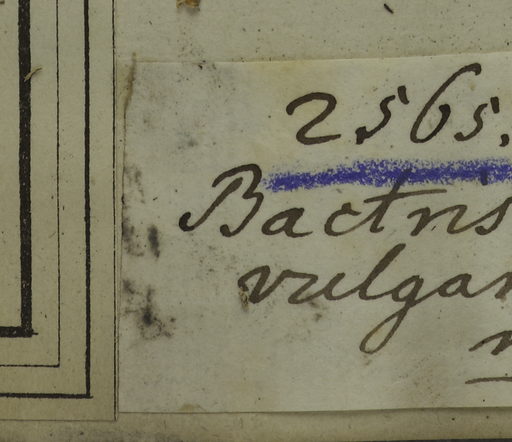 2565.
Bactris
vulgar